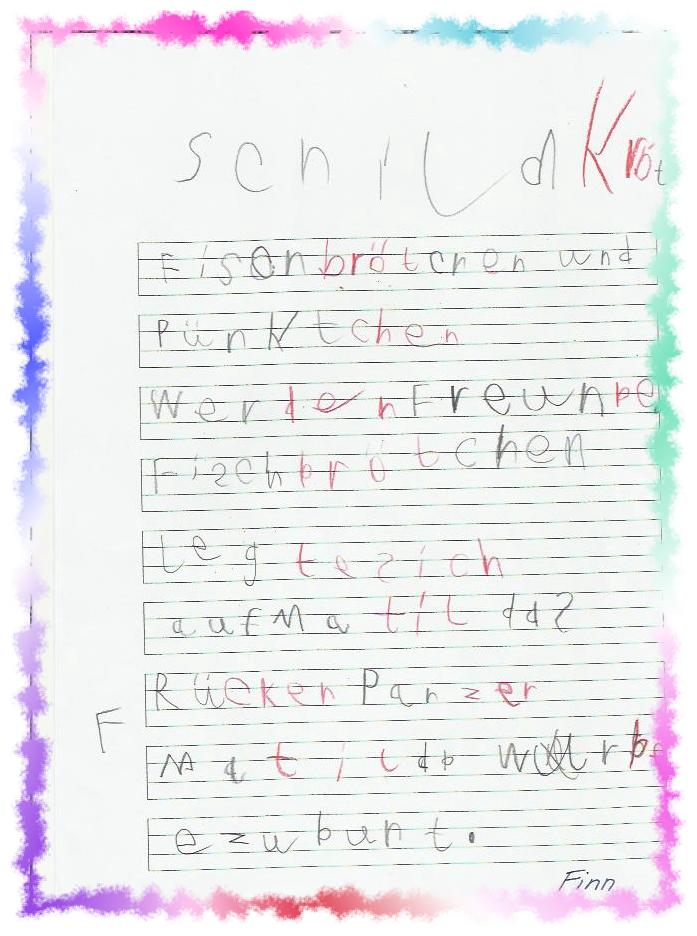 schildKröt
Fisenbrötchen und
Pünktchen
WerdenFreunde
Fischbrötchen
legtesich
aufMatildas
RückenPanzer
F
Matilda wurd
ezubunt.
Finn